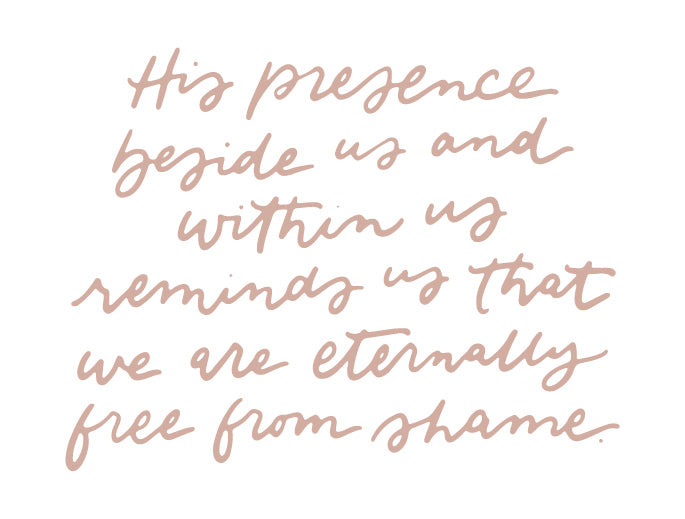 His presence
beside us and
within us
reminds us that
we are eternally
free from shame.